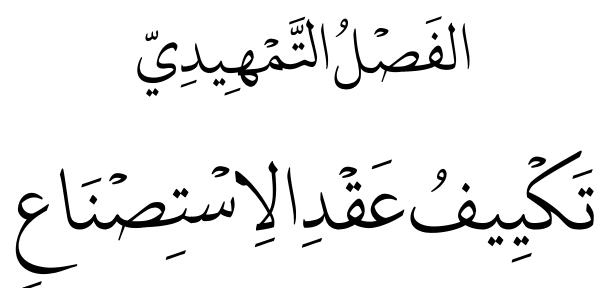 الفَصْلُ التَّمْهِيدِيّ
تَكْيِيفُ عَقْدِ الِاسْتِصْنَاعِ